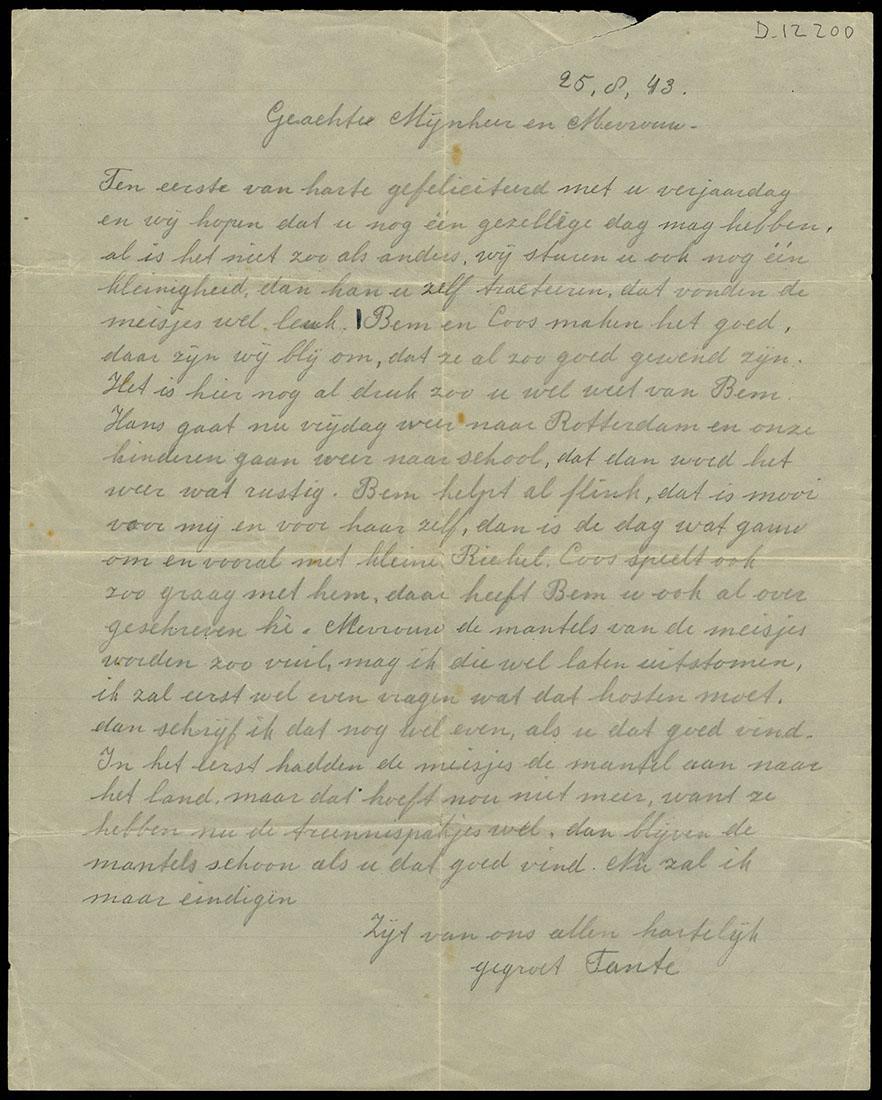 D.12200
25, 8, 43.
Geachte Mijnheer en Mevrouw-
Ten eerste van harte gefeliciteerd met u verjaardag
en wij hopen dat u nog één gezellige dag mag hebben,
al is het niet zoo als anders, wij sturen u ook nog één
kleinigheid, dan kan u zelf tracteeren, dat vonden de
meisjes wel leuk. Bem en Coos maken het goed,
daar zijn wij blij om, dat ze al zoo goed gewend zijn.
Het is hier nog al druk zoo u wel weet van Bem.
Hans gaat nu vrijdag weer naar Rotterdam en onze
kinderen gaan weer naar school, dat dan word het
weer wat rustig. Bem helpt al flink, dat is mooi
voor mij en voor haar zelf, dan is de dag wat gauw
om en vooral met kleine Riekel. Coos speelt ook
zoo graag met hem, daar heeft Bem u ook al over
geschreven hè. Mevrouw de mantels van de meisjes
worden zoo vuil, mag ik die wel laten uitstomen,
ik zal eerst wel even vragen wat dat kosten moet,
dan schrijf ik dat nog wel even, als u dat goed vind.
In het eerst hadden de meisjes de mantel aan naar
het land, maar dat hoeft nou niet meer, want ze
hebben nu de wel, dan blijven de
mantels schoon als u dat goed vind. Nu zal ik
maar eindigen
Zijt van ons allen hartelijk
gegroet Tante